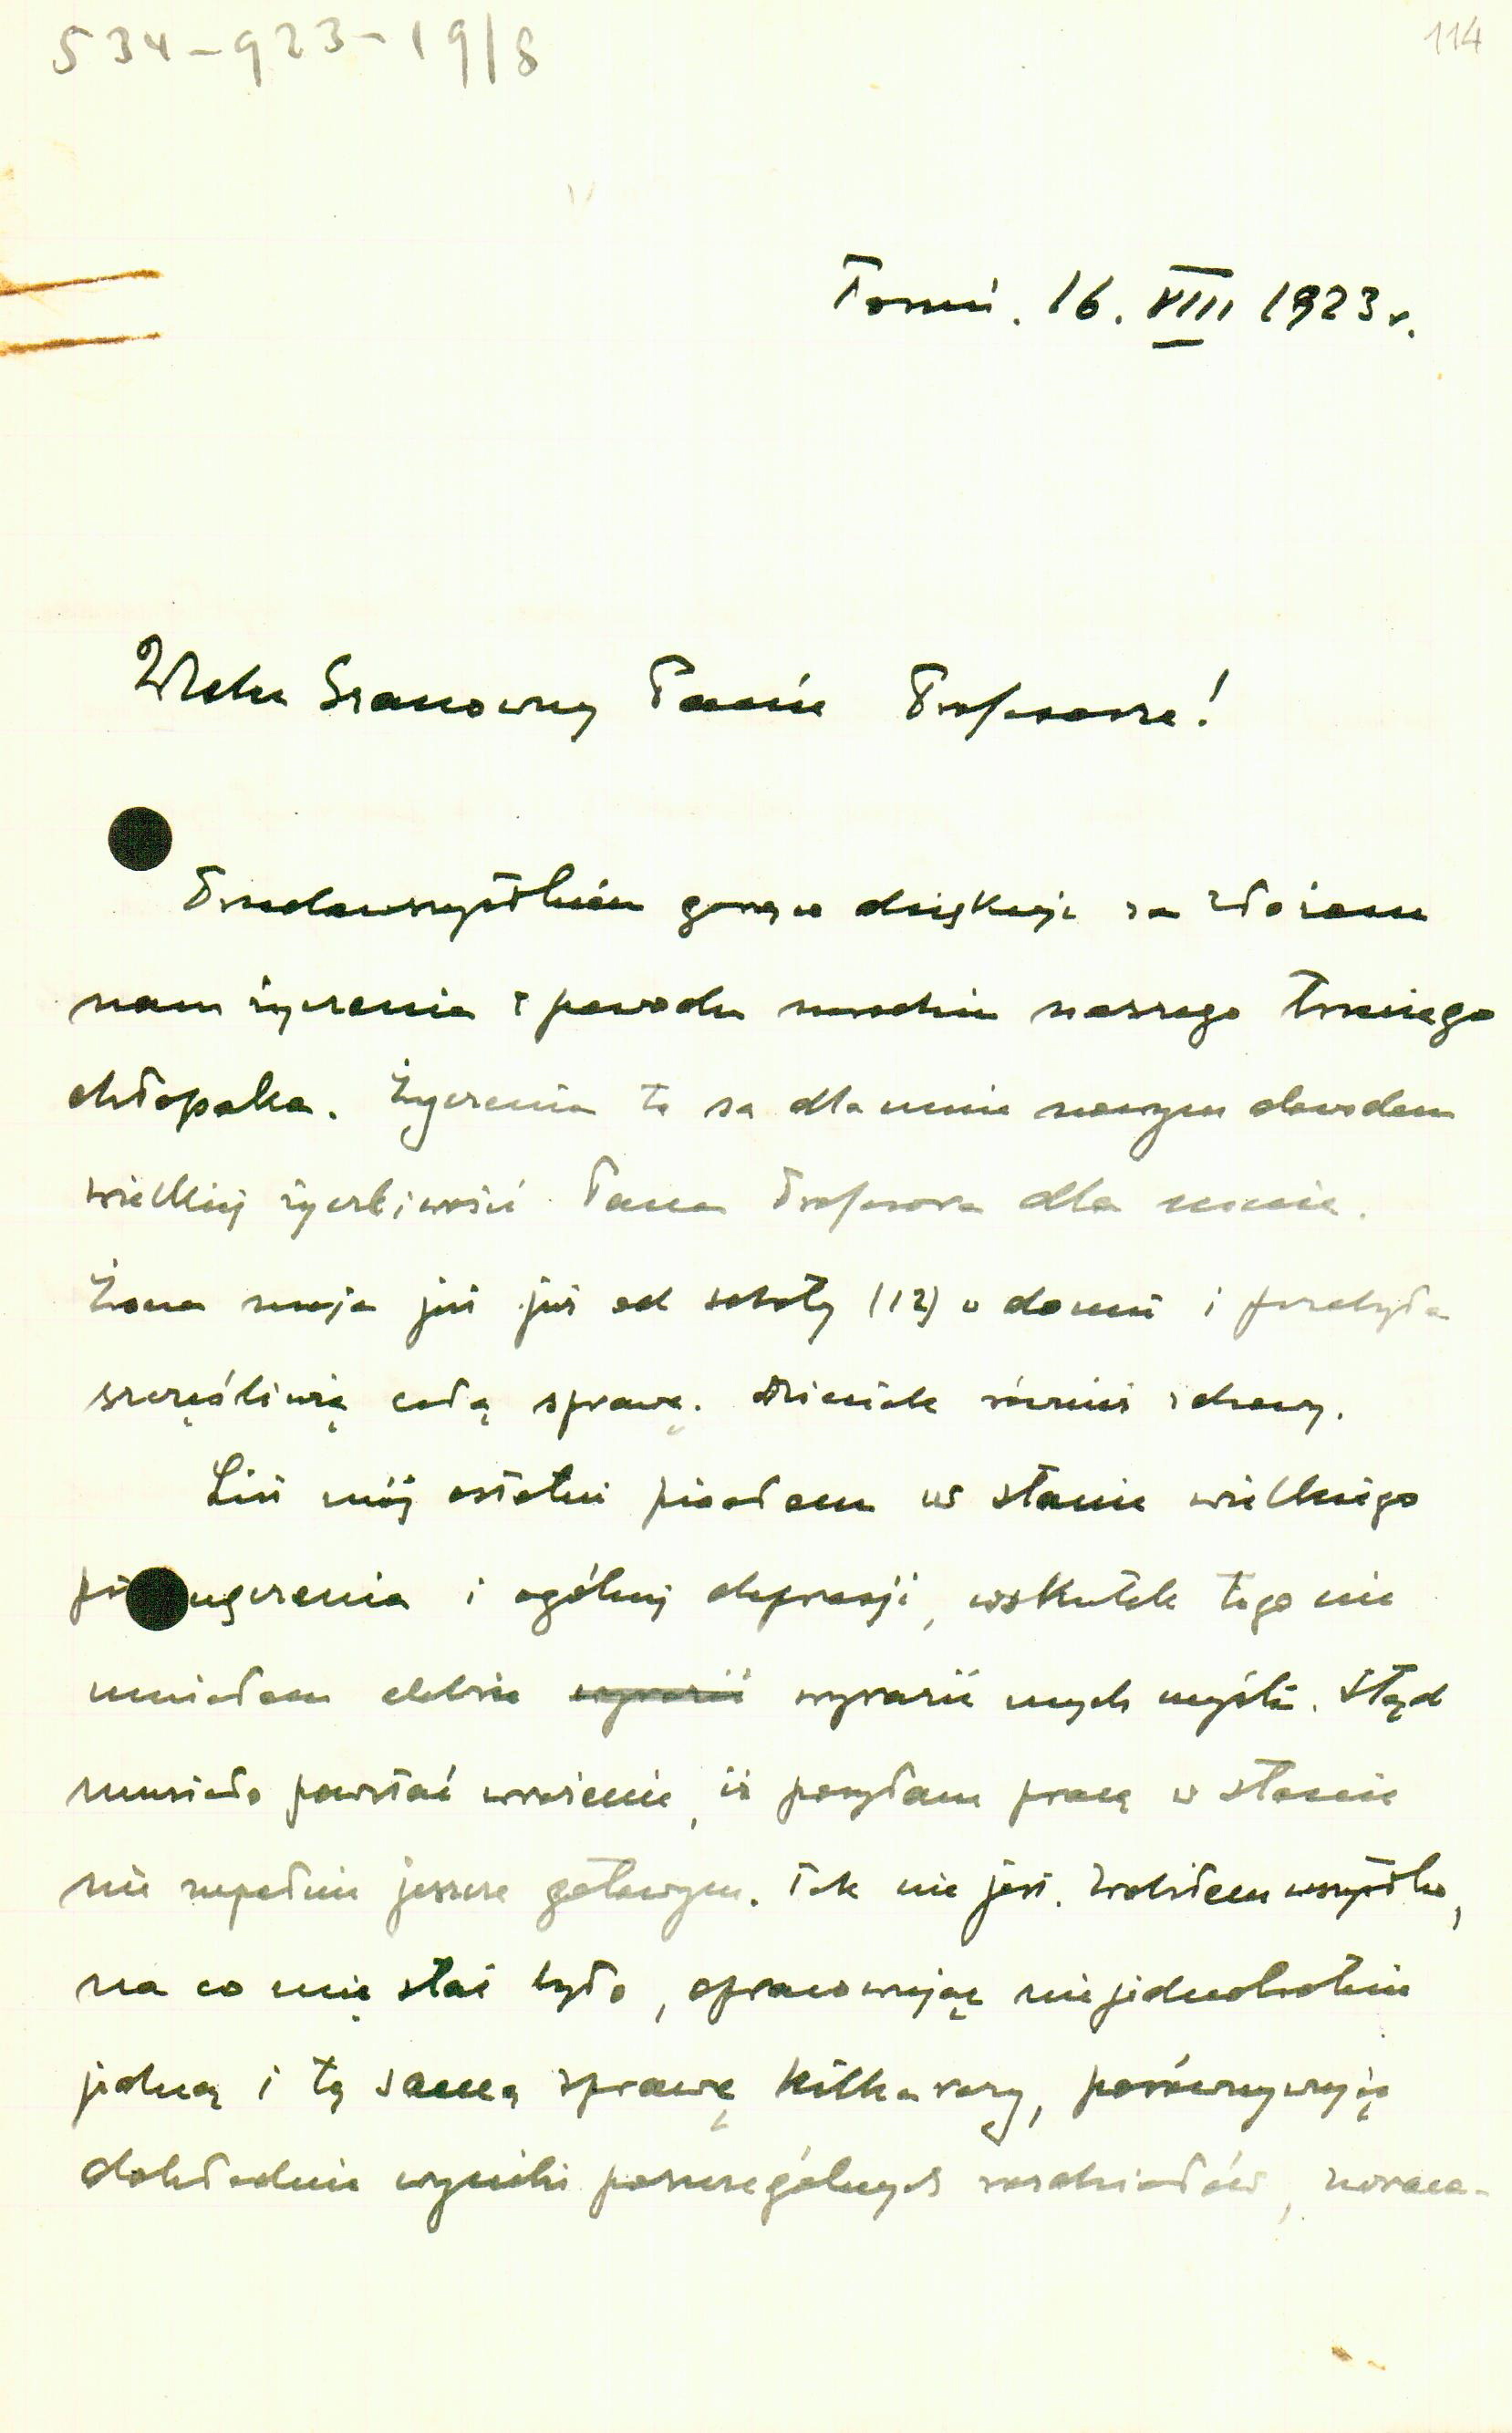 534-923-19/8
114
Toruń. 16. VIII 1923 r.
Wielce Szanowny Panie Profesorze!
Przedewszystkiem gorąco dziękuję za złożone
nam życzenia z powodu urodzin naszego trzeciego
chłopaka. Życzenia te są dla mnie nowym dowodem
wielkiej życzliwości Pana Profesora dla mnie.
Żona moja już już od soboty (12) w domu i przebyła
szczęśliwię całą sprawę. Dzieciak również zdrowy.
List mój ostatni pisałem w stanie wielkiego
przemęczenia i ogólnej depresji, wskutek tego nie
umiałem dobrze wyrazić wyrazić mych myśli. Stąd
musiało powstać wrażenie, iż posyłam pracę w stanie
nie zupełnie jeszcze gotowym. Tak nie jest. Zrobiłem wszystko,
na co mię stać było, opracowując niejednokrotnie
jedną i tę samą sprawę kilka razy, porównywując
dokładnie wyniki poszczególnych rozdziałów, zwraca-